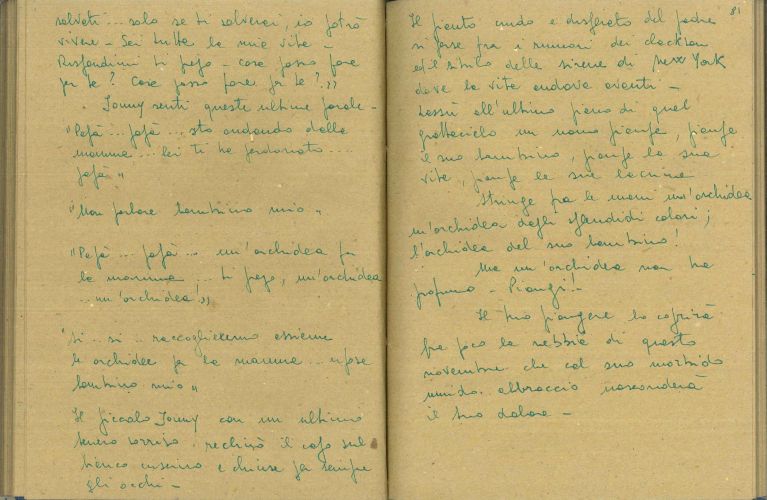 salvati... solo se ti salverai, io potrò
vivere - Sei tutta la mia vita -
Rispondimi ti prego - cosa posso fare
per te? Cosa posso fare per te?,,
Jonny sentì queste ultime parole -
"Papà... papà... sto andando dalla
mamma... lei ti ha perdonato....
papà"
"Non parlare bambino mio"
"Papà... papà... un'orchidea per
la mamma... ti prego, un'orchidea
...un'orchidea!,,
"Sì... sì... raccoglieremo assieme
le orchidee per la mamma... riposa
bambino mio"
Il piccolo Jonny con un ultimo
tenero sorriso reclinò il capo sul
bianco cuscino e chiuse per sempre
gli occhi -
81
Il pianto crudo e disperato del padre
si perse fra i rumori dei clackson
ed il sibilo delle sirene di New York
dove la vita andava avanti -
Lassù all'ultimo piano di quel
grattacielo un uomo piange, piange
il suo bambino, piange la sua
vita, piange le sue lacrime
Stringe fra le mani un'orchidea
un'orchidea dagli splendidi colori;
l'orchidea del suo bambino!
Ma un'orchidea non ha
profumo - Piangi! -
Il tuo piangere lo coprirà
fra poco la nebbia di questo
novembre che col suo morbido
umido abbraccio nasconderà
il tuo dolore -